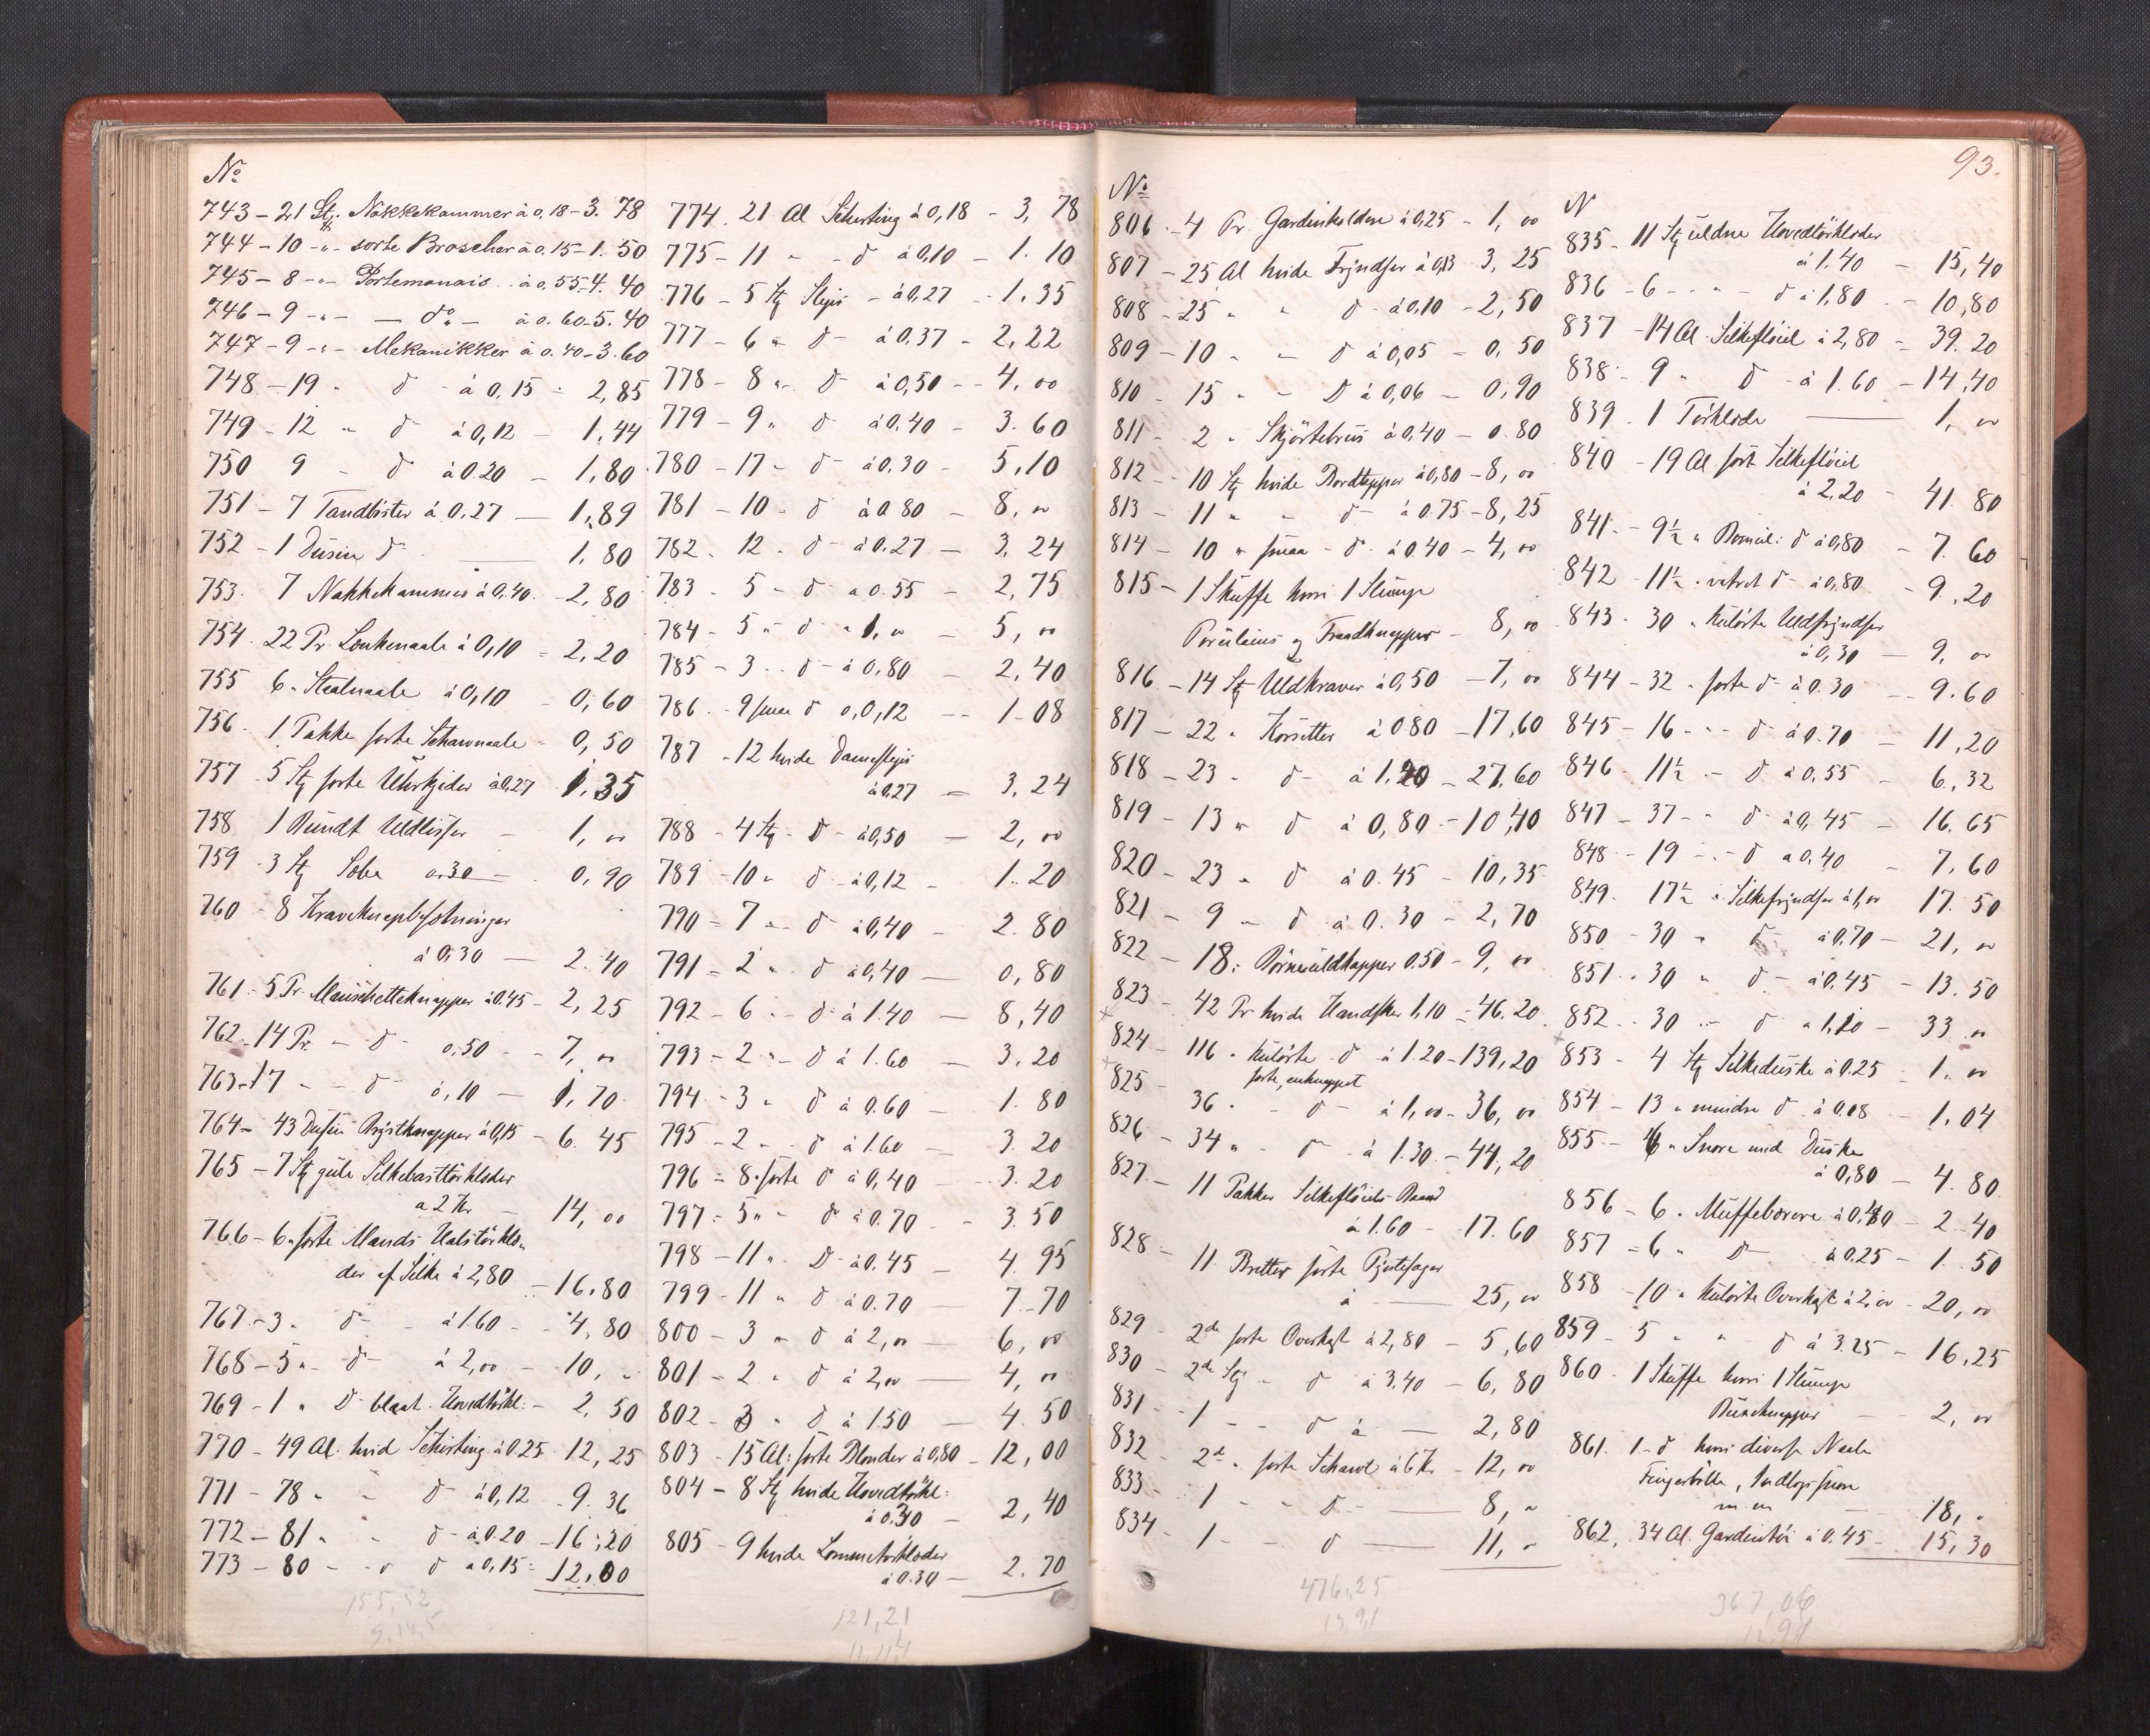 No
743 - 21 Stj. Nakkekammer à 0,18 - 3. 78
744 - 10 -"- sorte Broscher à 0.15 - 1. 50
745 - 8 -"- Portemonais à 0,55 - 4. 40
746 - 9 -"- - do - à 0.60 - 5. 40
747 - 9 -"- Mekanikker à 0.40 - 3.60
748 - 19 " d à 0,15 - 2,85
749 - 12 " d à 0,12 - 1,44
750 9 - d à 0.20 - 1,80
751 - 7 Tandbøster à 0.27 - 1,89
752 - 1 Dusin d - 1,80
753. 7 Nakkekammer à 0,40. - 2,80
754. 22 Pr. Lonkenaale à 0,10 - 2,20
755 6 " Staalnaale à 0,10 - 0,60
756. 1 Pakke sorte Schawnaale - 0,50
757 - 5 Stj sorte Uhrkjeder à 0,27 1.35
758 1 Bundt Uldlisser - 1, "
759 - 3 Stj Sæbe 0.30 - 0,90
760 - 8 Kraveknapbesætninger
à 0,30 - 2.40
761 - 5 Pr. Manschetteknapper à 0.45 - 2,25
762 - 14 Pr. - d - 0.50 - 7, "
763 - 17 - - d - 0,10 - 1,70
764 - 43 Dusin Brystknapper à 0,15 - 6.45
765 - 7 Stj gule Silkebasttörklæder
a 2 Kr. - 14, 00
766 - 6 " sorte Mands Halstörklæ-
der af Silke à 2,80 - 16.80
767 - 3 " d - à 1.60 - 4,80
768 - 5 " d - à 2,00 - 10, "
769 - 1 " D blaat Hovedtörkl: - 2,50
770 - 49 Al. hvid Schirting à 0.25 12,25
771 - 78 " - d à 0,12 - 9.36
772 - 81 " - d - à 0.20 - 16,20
773 - 80 - " d a 0,15 - 12,00
155,52
774. 21 Al Schirting à 0,18 - 3, 78
775 - 11 - - d à 0,10 - 1. 10
776 - 5 Stj Slips - à 0,27 - 1.35
777 - 6 " d - à 0.37 - 2,22
778 - 8 " D - à 0,50 - 4, 00
779 - 9 " d à 0.40 - 3.60
780 - 17 - d - à 0.30 - 5,10
781 - 10 - d à 0.80 - 8, "
782 . 12 . d - à 0.27 - 3,24
783 . 5 - d a 0.55 - 2,75
784 - 5 " d " 1, " - 5, 00
785 - 3 - d - à 0,80 - 2,40
786 - 9 smaa d a 0,12 - 1.08
787 - 12 hvide Dameslips
à 0,27 - 3,24
788 - 4 Stj - D - à 0,50 - 2, 00
789 - 10 " d - à 0,12 - 1.20
790 - 7 " d à 0,40 - 2.80
791 - 2 " d à 0,40 - 0,80
792 - 6 - d à 1.40 - 8,40
793 - 2 " d à 1.60 - 3.20
794 - 3 " d à 0.60 - 1.80
795 - 2 - d à 1.60 - 3.20
796 - 8 " sorte d à 0,40 - 3.20
797 - 5 " d à 0.70 - 3.50
798 - 11 " D - à 0.45 - 4.95
799 - 11 " d à 0.70 7.70
800 - 3 " d à 2,00 - 6, 00
801 - 2 " d à 2,00 - 4, 00
802 - 3 " d à 1.50 - 4.50
803 - 15 Al: sorte Blonder à 0,80 - 12,00
804 - 8 Stj hvide Hovedtörkl:
à 0.30 - 2,40
805 - 9 hvide Lommetörklæder
à 0.30 - 2.70
121,21
No
806 - 4 Pr. Gardinholdere à 0,25 - 1, 00
807 - 25 Al hvide Fryndser à 0,13 3,25
808 - 25 " " d - à 0,10 - 2,50
809 - 10 " - d à 0,05 - 0,50
810 - 15 " - D à 0,06 - 0,90
811 - 2 " Skjörtebrus à 0,40 - 0.80
812 - 10 Stj hvide Bordtepper à 0,80 - 8, 00
813 - 11 " - d - à 0.75 - 8,25
814 - 10 " smaa - d - à 0.40 - 4, 00
815 - 1 Skuffe hvori 1 Slump
Porcelains og Traadknapper - 8, 00
816 - 14 Stj Uldkraver à 0,50 - 7, 00
817 - 22 " Korsetter à 0.80 - 17,60
818 - 23 - d - à 1.20 - 27.60
819 - 13 " d à 0,80 - 10,40
820 - 23 " d à 0.45 - 10,35
821 - 9 - d à 0.30 - 2,70
822 - 18: Börneuldkapper 0.50 - 9, 00
823 - 42 Pr hvide Handsker 1,10 - 46.20
824 - 116 " kulörte - d à 1.20 - 139,20
825 - sorte, enknappet
36 " - d - à 1,00 - 36, 00
826 - 34 " - d - à 1.30 - 44,20
827 - 11 Pakker Silkeflöiels Baand
à 1.60 - 17.60
828 - 11 Bretter sorte Pyntesager
à - 25, 00
829 - 2de sorte Overkast à 2,80 - 5,60
830 - 2de Stj " d à 3.40 - 6,80
831 - 1 - - d à - 2,80
832 - 2de " sorte Schawl à 6 Kr. - 12, 00
833 - 1 - - D - 8, "
834 - 1 - d - 11, "
476,25
13,91
93.
N
835 - 11 Stj uldne Hovedtörklæder
à 1.40 - 15,40
836 - 6 - " - d à 1,80 - 10,80
837 - 14 Al. Silkeflöiel à 2,80 - 39.20
838 - 9 " D - à 1.60 - 14,40
839 . 1 Törklæde - 1, 00
840 - 19 Al sort Silkeflöiel
à 2,20 - 41.80
841 - 9½ " Bomuld: d à 0,80 - 7.60
842 - 11½ " d - à 0,80 - 9.20
843 - 30 " kulörte Uldfryndser
à 0,30 - 9, 00
844 - 32 " sorte d - à 0.30 - 9.60
845 - 16 - - d - à 0.70 - 11,20
846 - 11½ - D à 0,55 - 6,32
847 - 37 - " d à 0,45 - 16.65
848 - 19 - - d a 0.40 - 7,60
849 - 17½ " Silkefryndser à 1,00 17.50
850 - 30 " d à 0.70 - 21, 00
851 - 30 " d - à 0.45 - 13.50
852 - 30 - d a 1,10 - 33 00
853 - 4 Stj Silkeduske à 0.25 - 1. 00
854 - 13 " mindre d - à 0.08 - 1.04
855 - 6 " Snore med Duske
à 0,80 - 4.80
856 - 6 " Muffebærere à 0,40 - 2.40
857 - 6 " D - à 0.25 - 1.50
858 - 10 " kulörte Overkast à 2,00 - 20, 00
859 - 5 " " d à 3.25 - 16,25
860 - 1 Skuffe hvori 1 Slump
Buxeknapper - 2, 00
861. 1 - d hvori diverse Naale
Fingerbölle,
m m - 18, "
862. 34 Al. Gardintöi à 0.45 - 15,30
367,06
12,91